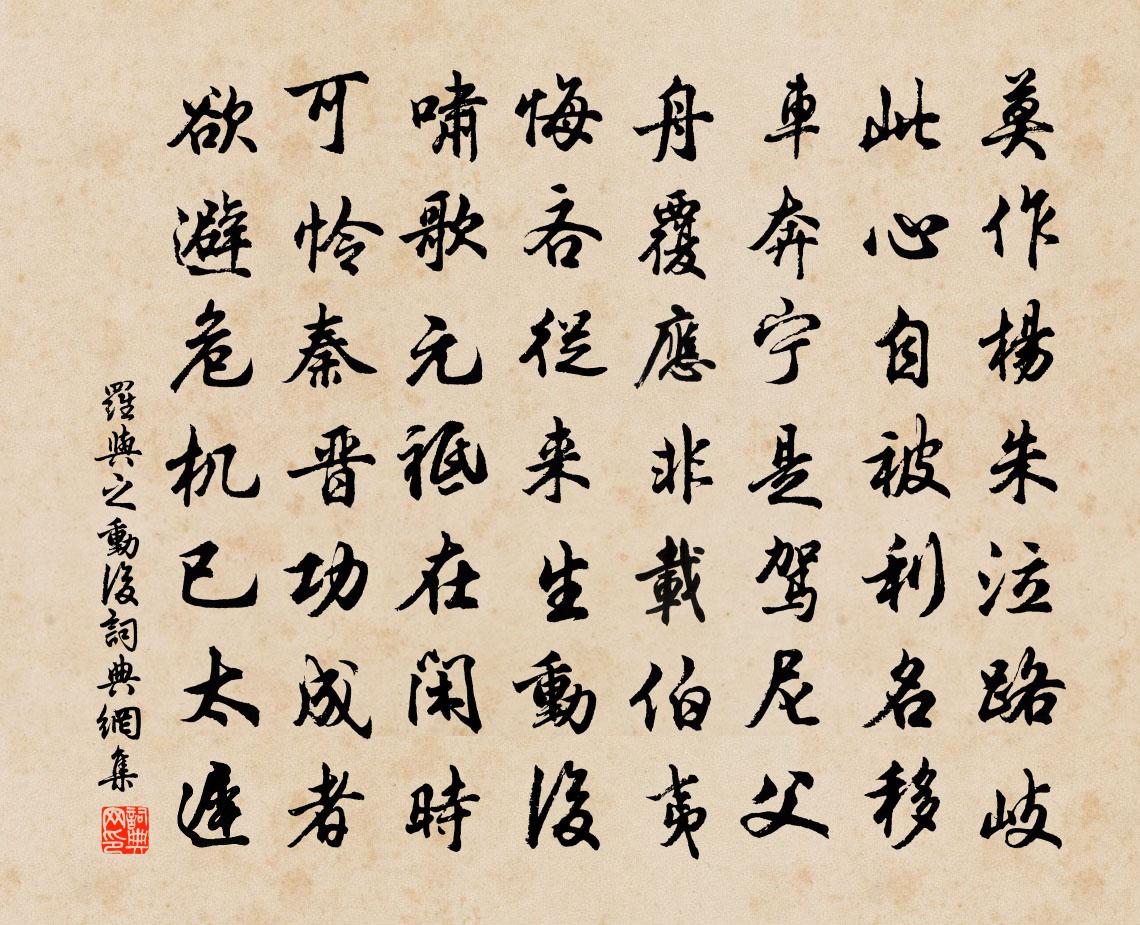 莫作楊朱泣路岐
此心自被利名移
車奔宁是駕尼父
舟覆應非載伯夷
悔吝從来生動後
嘯歌元祗在閑時
可怜秦晋功成者
欲避危机已太遲
羅與之動後詞典網集
詞典网印